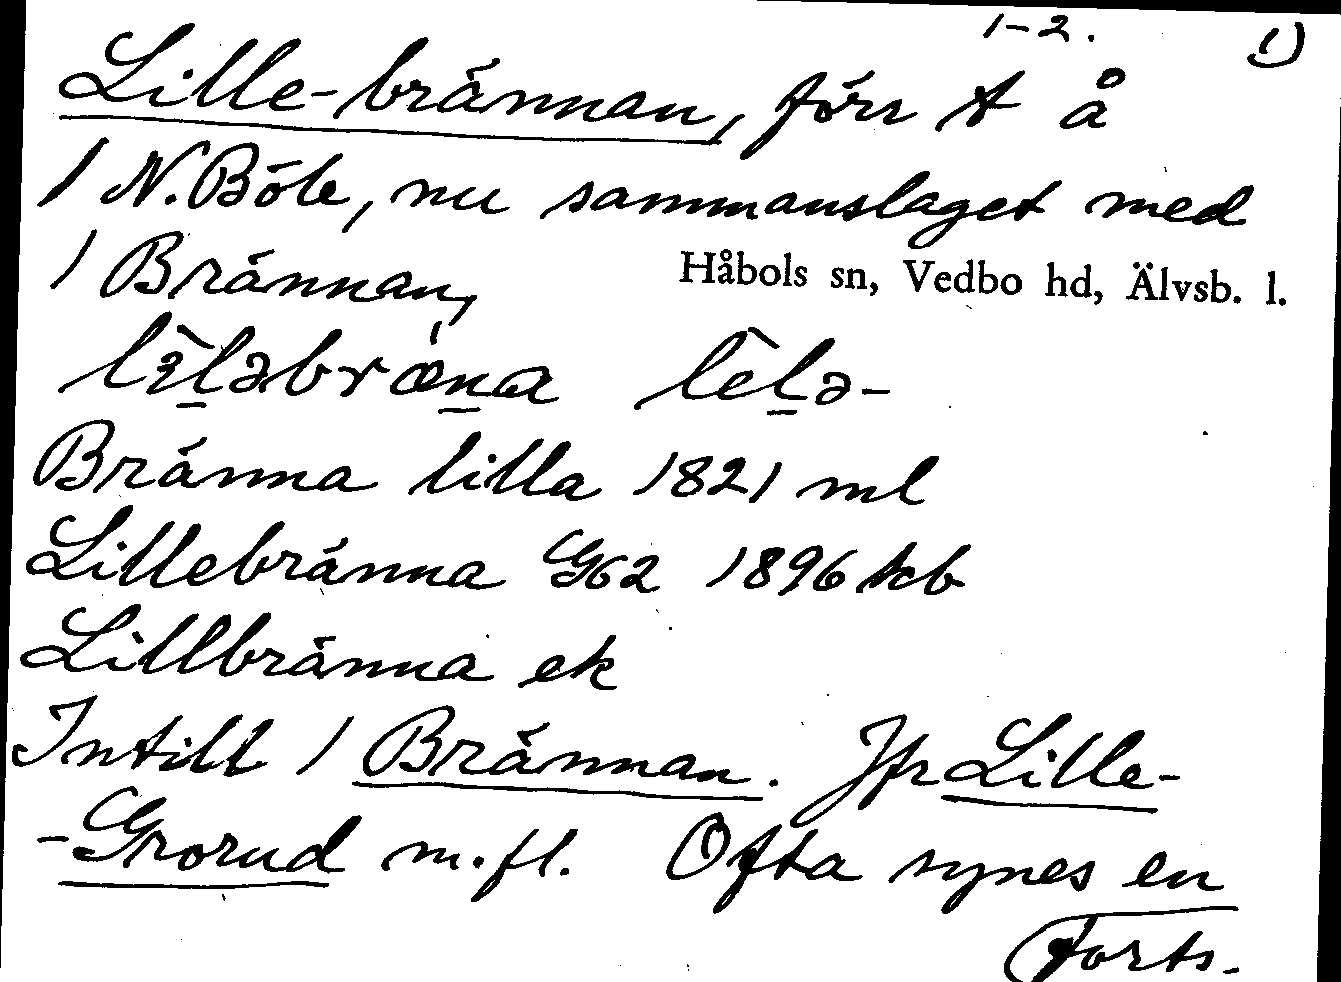 1-2. 1)
Lille-brännan, förr t å
1 N. Böle, nu sammanslaget med
1 Brännan,
Håbols sn, Vedbo hd, Älvsb. l.
Bränna lilla 1821 ml
Lillebränna G62 1896 kb
Lillbränna ek
Intill 1 Brännan. Jfr Lille-
-Grorud m.fl. Ofta synes en
Forts.